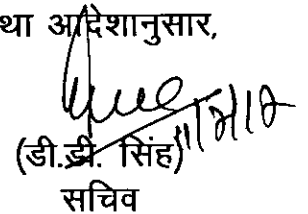 था आदेशानुसार,
(डी.डी. सिंह)
सचिव